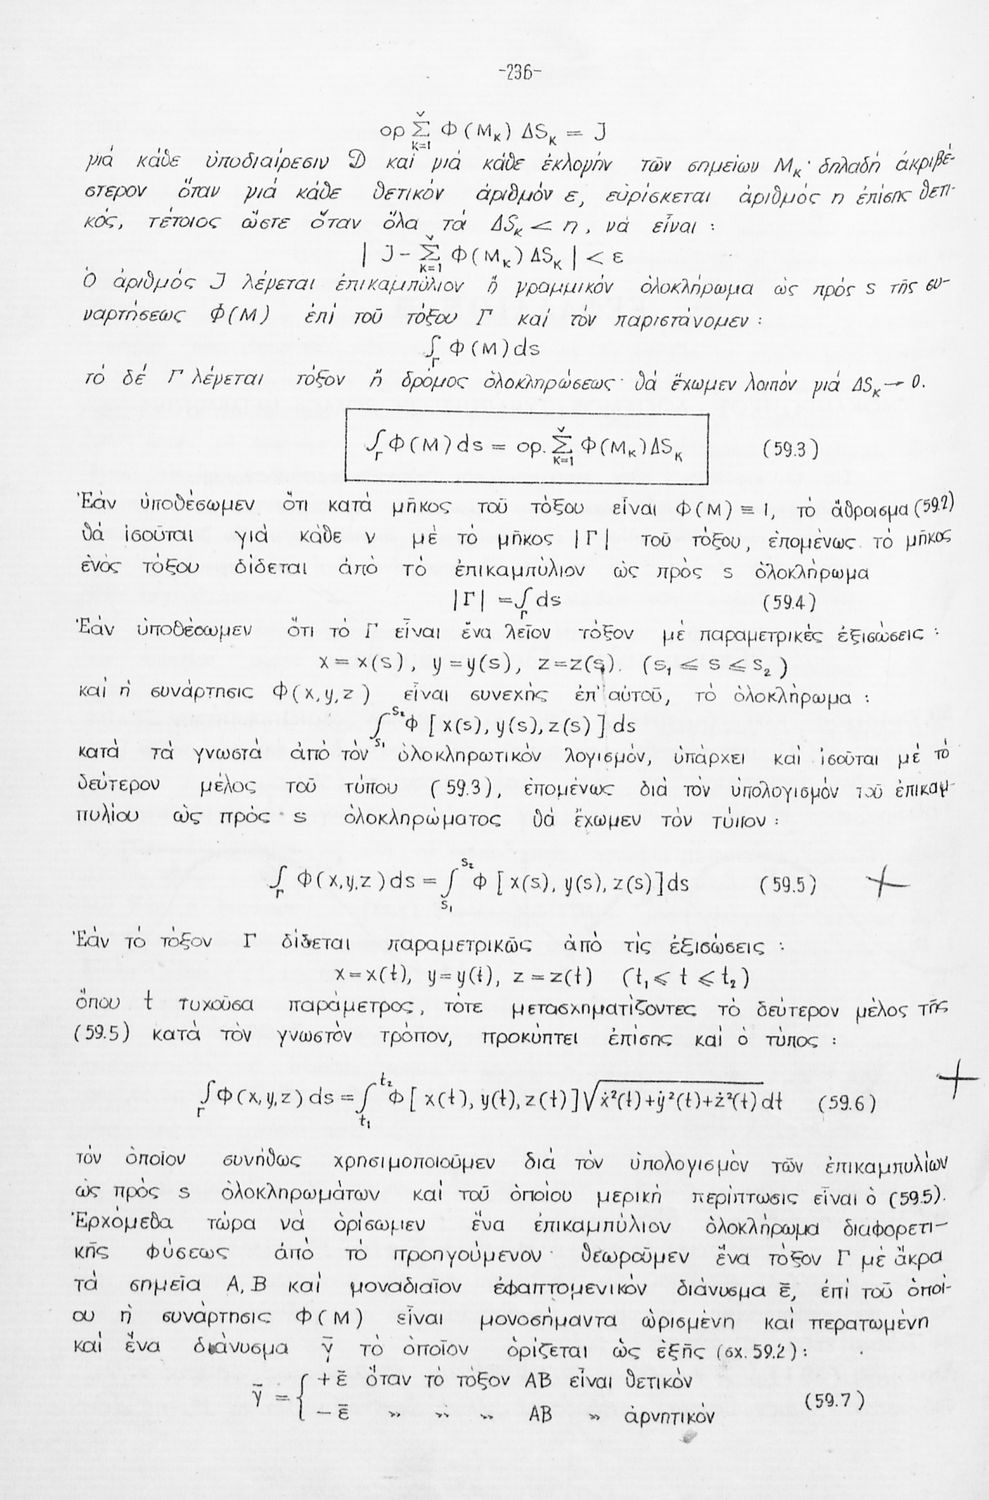 -236-
ορ Σ_{κ=1}^{ν} Φ(Μ_κ) ΔS_κ = J
γιά κάθε ὑποδιαίρεσιν 𝒟 καί γιά κάθε ἐκλογήν τῶν σημείων Μ_κ· δηλαδή ἀκριβέ-
στερον ὅταν γιά κάθε θετικόν ἀριθμόν ε, εὑρίσκεται ἀριθμός η ἐπίσης θετι-
κός, τέτοιος ὥστε ὅταν ὅλα τά ΔS_κ < η, νά εἶναι :
| J - Σ_{κ=1}^{ν} Φ(Μ_κ) ΔS_κ | < ε
Ὁ ἀριθμός J λέγεται ἐπικαμπύλιον ἤ γραμμικόν ὁλοκλήρωμα ὡς πρός s τῆς συ-
ναρτήσεως Φ(Μ) ἐπί τοῦ τόξου Γ καί τόν παριστάνομεν :
∫_Γ Φ(Μ)ds
τό δέ Γ λέγεται τόξον ἤ δρόμος ὁλοκληρώσεως· θά ἔχωμεν λοιπόν γιά ΔS_κ → 0.
∫_Γ Φ(Μ)ds = ορ. Σ_{κ=1}^{ν} Φ(Μ_κ)ΔS_κ (59.3)
Ἐάν ὑποθέσωμεν ὅτι κατά μῆκος τοῦ τόξου εἶναι Φ(Μ) ≡ 1, τό ἄθροισμα (59.2)
θά ἰσοῦται γιά κάθε ν μέ τό μῆκος |Γ| τοῦ τόξου, ἑπομένως τό μῆκος
ἑνός τόξου δίδεται ἀπό τό ἐπικαμπύλιον ὡς πρός s ὁλοκλήρωμα
|Γ| = ∫_Γ ds (59.4)
Ἐάν ὑποθέσωμεν ὅτι τό Γ εἶναι ἕνα λεῖον τόξον μέ παραμετρικές ἐξισώσεις :
x = x(s), y = y(s), z = z(s). (s₁ ⩽ s ⩽ s₂)
καί ἡ συνάρτησις Φ(x,y,z) εἶναι συνεχής ἐπ' αὐτοῦ, τό ὁλοκλήρωμα :
∫_{s₁}^{s₂} Φ [x(s), y(s), z(s)] ds
κατά τά γνωστά ἀπό τόν ὁλοκληρωτικόν λογισμόν, ὑπάρχει καί ἰσοῦται μέ τό
δεύτερον μέλος τοῦ τύπου (59.3), ἑπομένως διά τόν ὑπολογισμόν τοῦ ἐπικαμ-
πυλίου ὡς πρός s ὁλοκληρώματος θά ἔχωμεν τόν τύπον :
∫_Γ Φ(x,y,z)ds = ∫_{s₁}^{s₂} Φ [x(s), y(s), z(s)]ds (59.5) +
Ἐάν τό τόξον Γ δίδεται παραμετρικῶς ἀπό τίς ἐξισώσεις :
x = x(t), y = y(t), z = z(t) (t₁ ⩽ t ⩽ t₂)
ὅπου t τυχοῦσα παράμετρος, τότε μετασχηματίζοντες τό δεύτερον μέλος τῆς
(59.5) κατά τόν γνωστόν τρόπον, προκύπτει ἐπίσης καί ὁ τύπος :
∫_Γ Φ(x,y,z)ds = ∫_{t₁}^{t₂} Φ[x(t), y(t), z(t)]√(ẋ²(t)+ẏ²(t)+ż²(t)) dt (59.6) +
τόν ὁποῖον συνήθως χρησιμοποιοῦμεν διά τόν ὑπολογισμόν τῶν ἐπικαμπυλίων
ὡς πρός s ὁλοκληρωμάτων καί τοῦ ὁποίου μερική περίπτωσις εἶναι ὁ (59.5).
Ἐρχόμεθα τώρα νά ὁρίσωμεν ἕνα ἐπικαμπύλιον ὁλοκλήρωμα διαφορετι-
κῆς φύσεως ἀπό τό προηγούμενον· θεωροῦμεν ἕνα τόξον Γ μέ ἄκρα
τά σημεῖα Α, Β καί μοναδιαῖον ἐφαπτομενικόν διάνυσμα ε̄, ἐπί τοῦ ὁποί-
ου ἡ συνάρτησις Φ(Μ) εἶναι μονοσήμαντα ὡρισμένη καί περατωμένη
καί ἕνα διάνυσμα γ̄ τό ὁποῖον ὁρίζεται ὡς ἑξῆς (σχ. 59.2) :
γ̄ = { +ε̄ ὅταν τό τόξον ΑΒ εἶναι θετικόν
-ε̄ » » » ΑΒ » ἀρνητικόν (59.7)